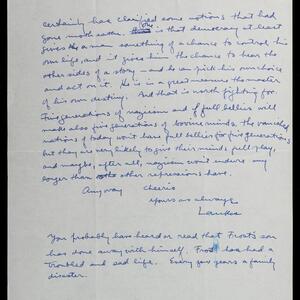 certainly have clarified some notions that had
gone moth eaten. One is that democracy at least
gives a man something of a chance to control his
own life, and it gives him the chance to hear the
other sides of a story – and he can pick his own choice
and act on it. He is in a great measure the master
of his own destiny. And that is worth fighting for.
Five generations of nazism and of full bellies will
make also five generations of bovine minds. The vanquished
nations of today won't have full bellies for five generations
but they are very likely to give their minds full play,
and maybe, after all, nazism won't endure any
longer than other repressions have.
Anyway cheerio
Yours as always
Lankes
You probably have heard or read that Frost's son
has done away with himself. Frost has had a
troubled and sad life. Every few years a family
disaster.